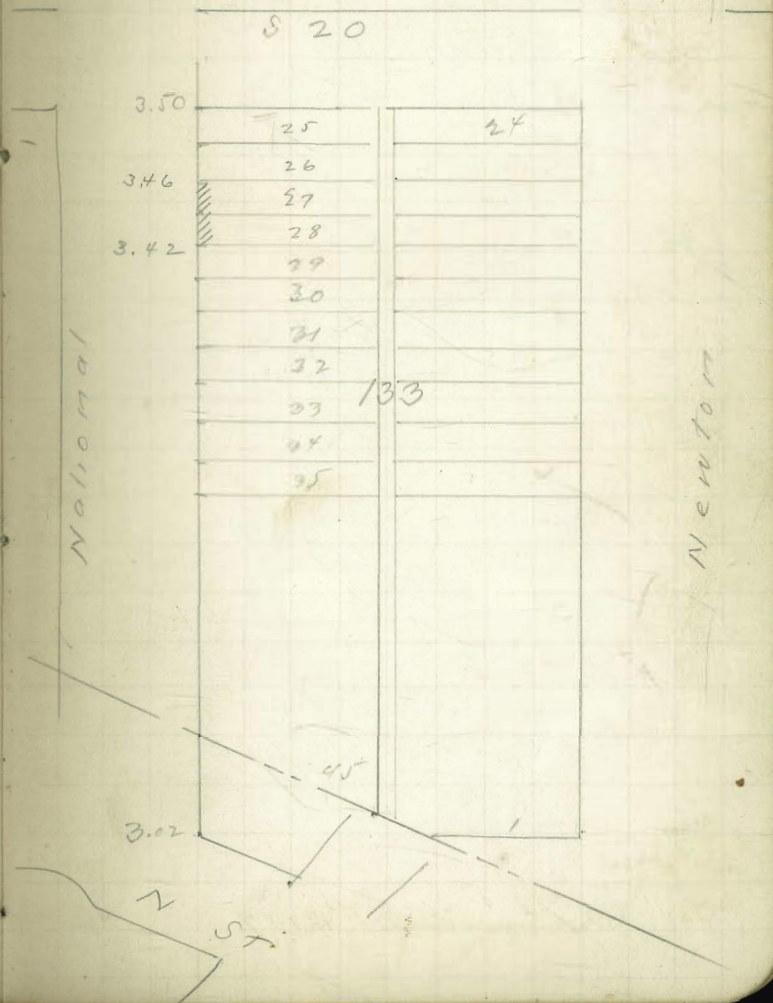 S 20
3.50
25
24
26
3.46
27
28
3.42
29
30
31
32
133
33
34
35
National
Newton
45
3.02
1
N ST.